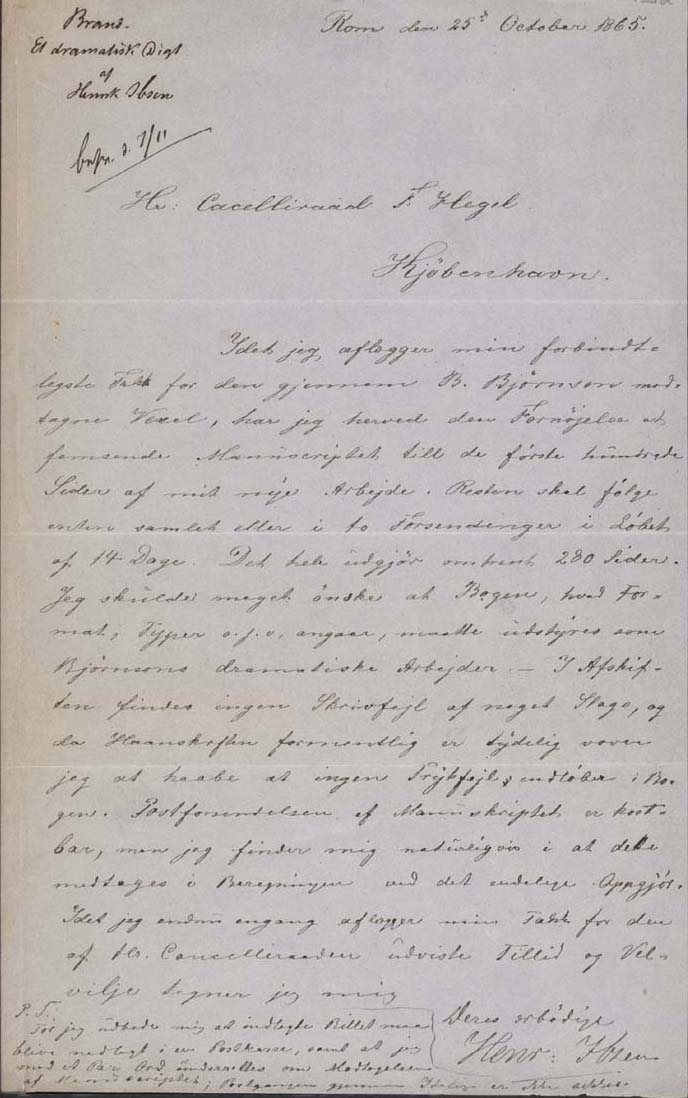 Brand.
Et dramatisk Digt
af
Henrik Ibsen
Rom den 25d October 1865.
7/11
Hr: Cacelliraad F. Hegel.
Kjöbenhavn.
Idet jeg aflægger min forbindt-
legste Takk for den gjennem B. Björnson mod-
tagne Vexel, har jeg herved den Fornöjelse at
fremsende Manuscriptet till de förste hundrede
Sider af mit nye Arbejde. Resten skal følge
enten samlet eller i to Forsendinger i Løbet
af 14 Dage. Det hele udgjör omtrent 280 Sider.
Jeg skulde meget önske at Bogen, hvad For-
mat, Typer o.s.v. angaar, maatte udstyres som
Björnsons dramatiske Arbejder. — I Afskrif-
ten findes ingen Skrivfejl af noget Slags, og
da Haanskriften formentlig er tydelig vover
jeg at haabe at ingen Trykfejl indløber i Bo-
gen. Postforsendelsen af Manuskriptet er kost-
bar, men jeg finder mig naturligvis i at dette
medtages i Beregningen ved det endelige Oppgjör.
Idet jeg endnu engang aflægger min Takk for den
af Hr. Cancelliraaden udviste Tillid og Vel-
vilje tegner jeg mig
Deres ærbödige
Henr: Ibsen
P. S.
Tör jeg udbede mig at indlagte Billet maa
blive nedlagt i en Postkasse, samt at jeg
med et Par Ord underrettes om Modtagelsen
af Manuscriptet; Postgangen gjennem Italien er ikke sikker.